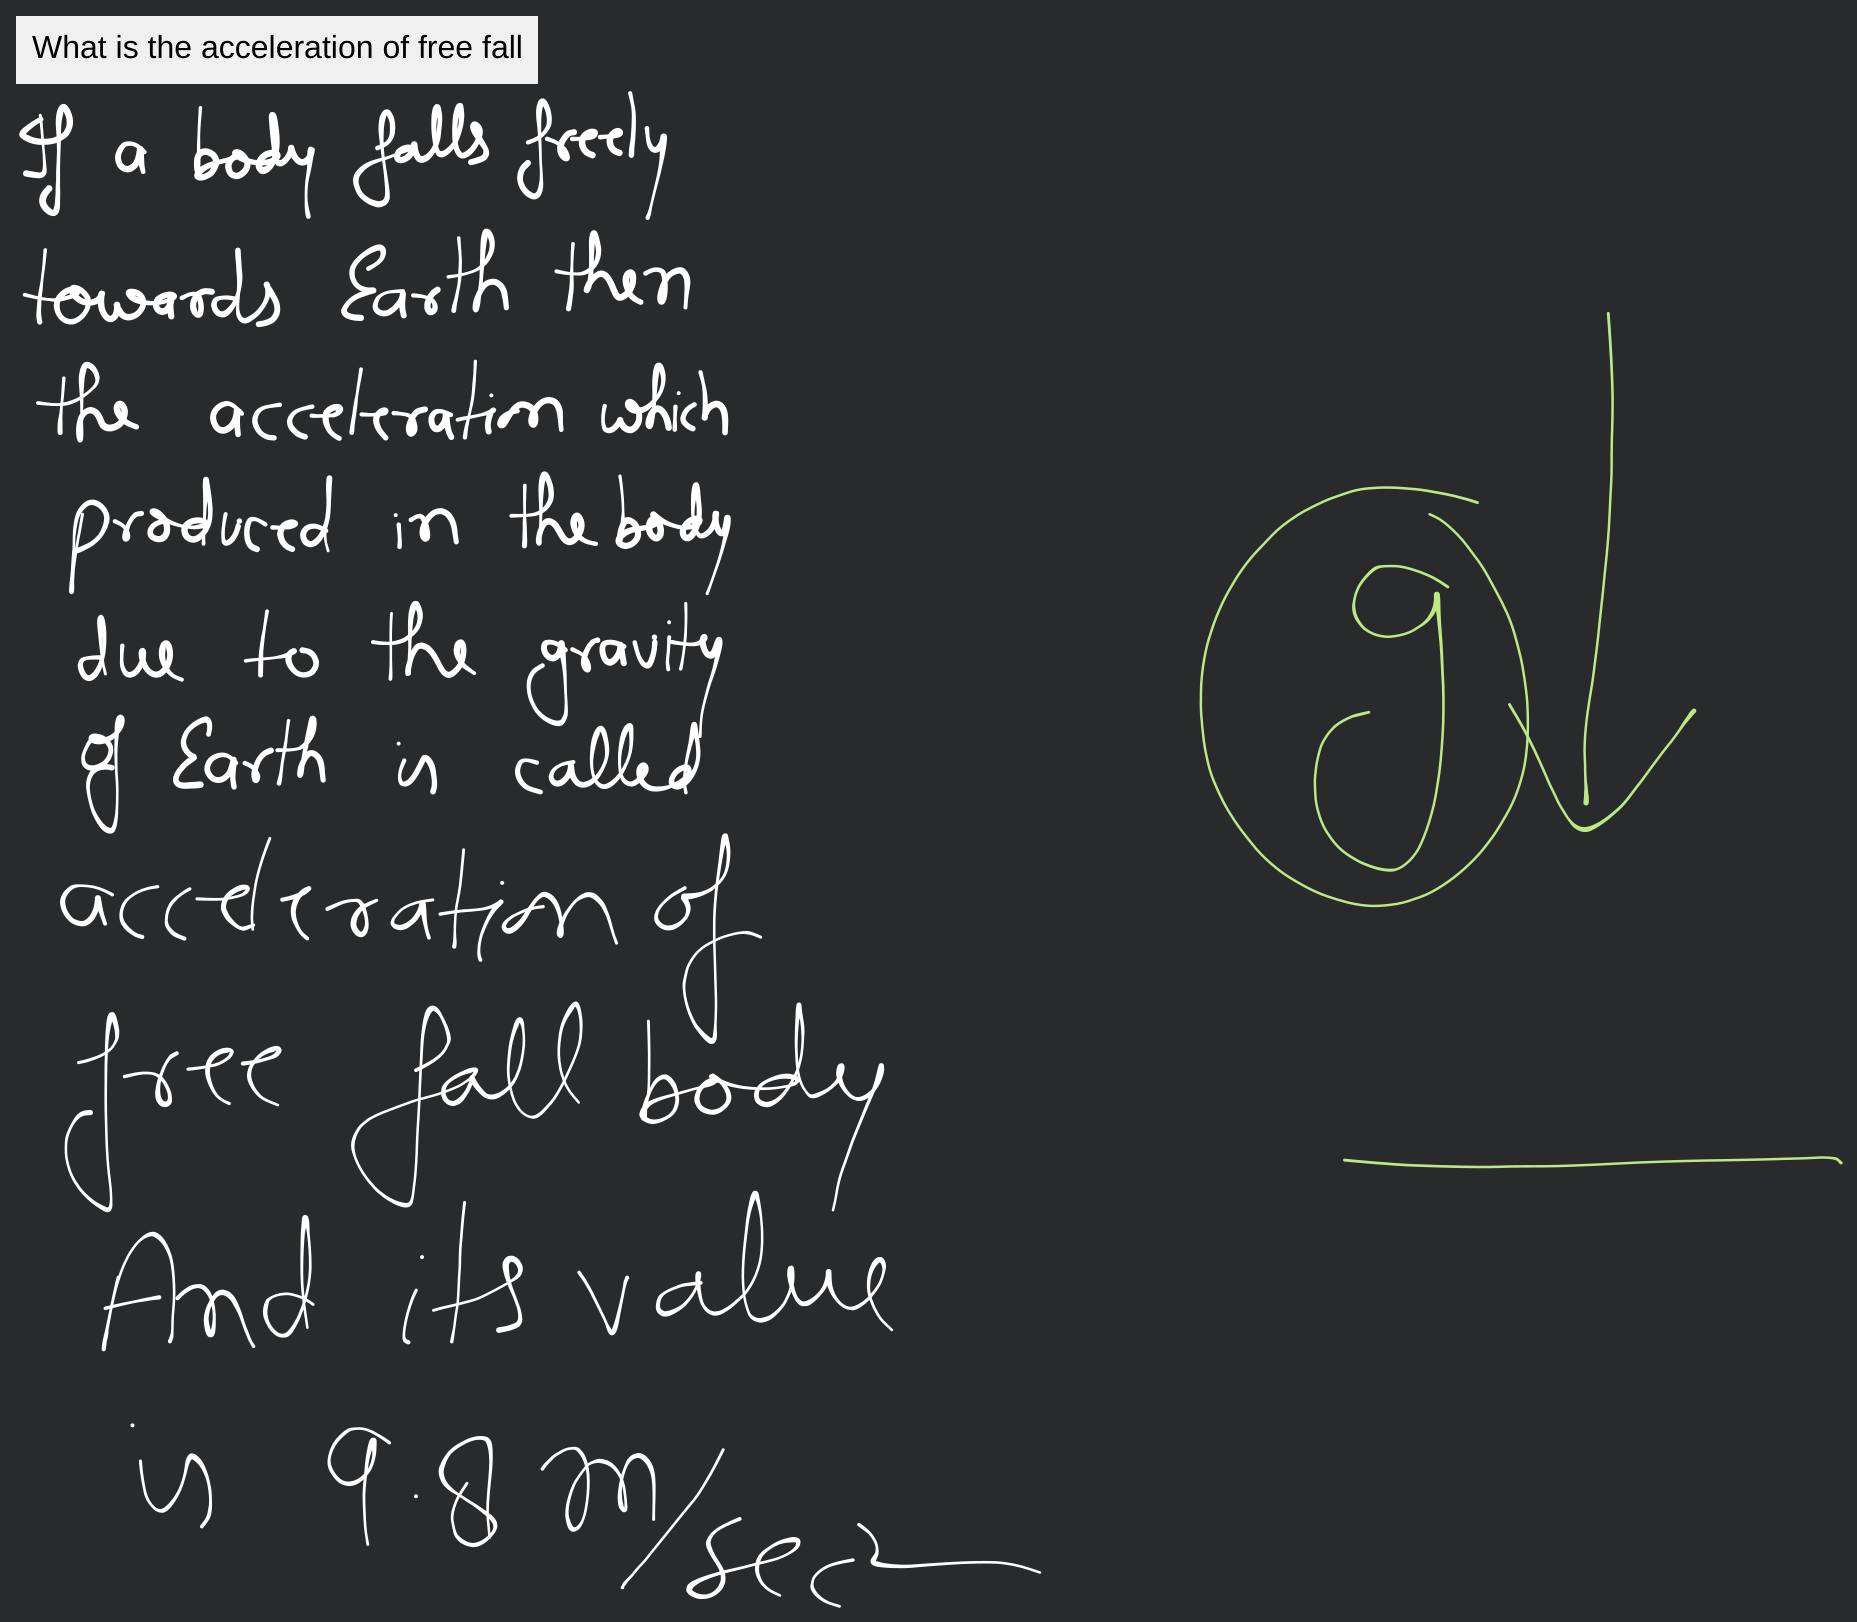 What is the acceleration of free fall
If a body falls freely
towards Earth then
the acceleration which
produced in the body
due to the gravity
of Earth is called
acceleration of
free fall body
And its value
is 9.8 m/sec²
g